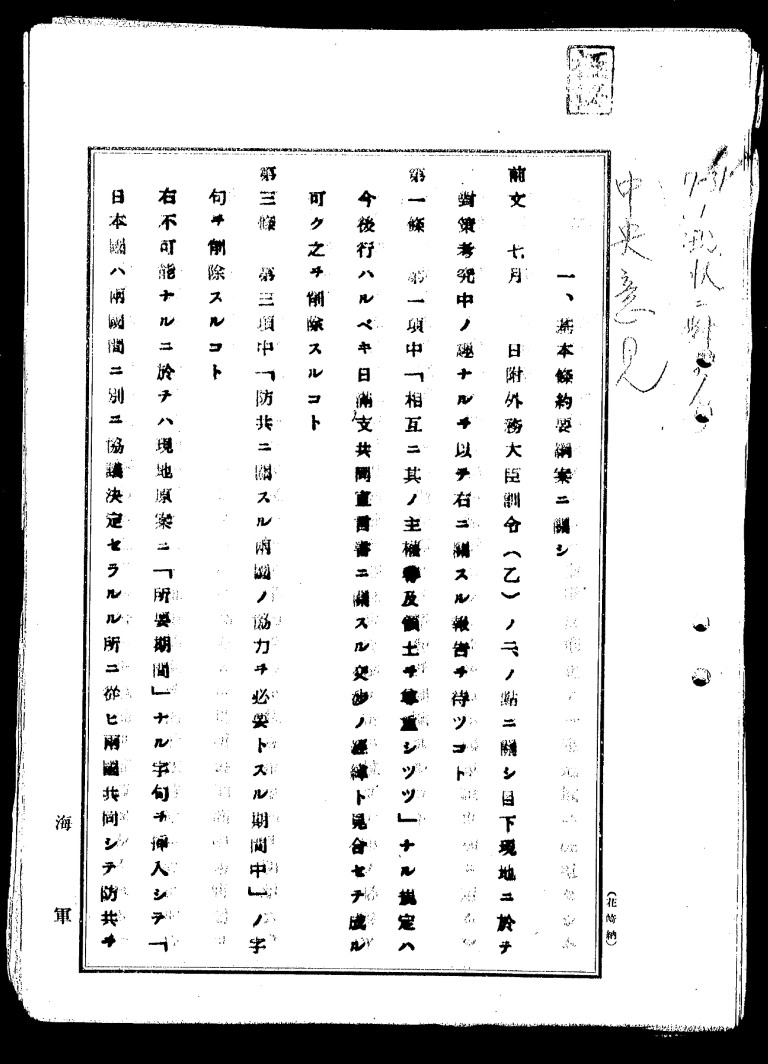 極秘
中央意見
一、基本條約要綱案ニ關シ
前文 七月 日附外務大臣訓令(乙)ノ二、ノ點ニ關シ目下現地ニ於テ
對策考究中ノ趣ナルヲ以テ右ニ關スル報吿ヲ待ツコト
第一條 第一項中「相互ニ其ノ主權及領土ヲ尊重シツツ」ナル規定ハ
今後行ハルベキ日滿支共同宣言書ニ關スル交渉ノ經緯ト見合セテ成ル
可ク之ヲ削除スルコト
第三條 第三項中「防共ニ關スル兩國ノ協力ヲ必要トスル期間中」ノ字
句ヲ削除スルコト
右不可能ナルニ於テハ現地原案ニ「所要期間」ナル字句ヲ挿入シテ「
日本國ハ兩國間ニ別ニ協議決定セラルル所ニ從ヒ兩國共同シテ防共ヲ
海軍
(花崎納)